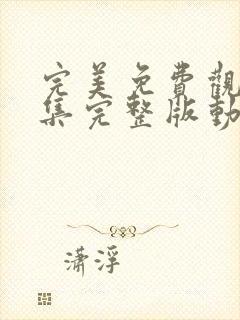 完美免費觀
集完整版動
瀟浮